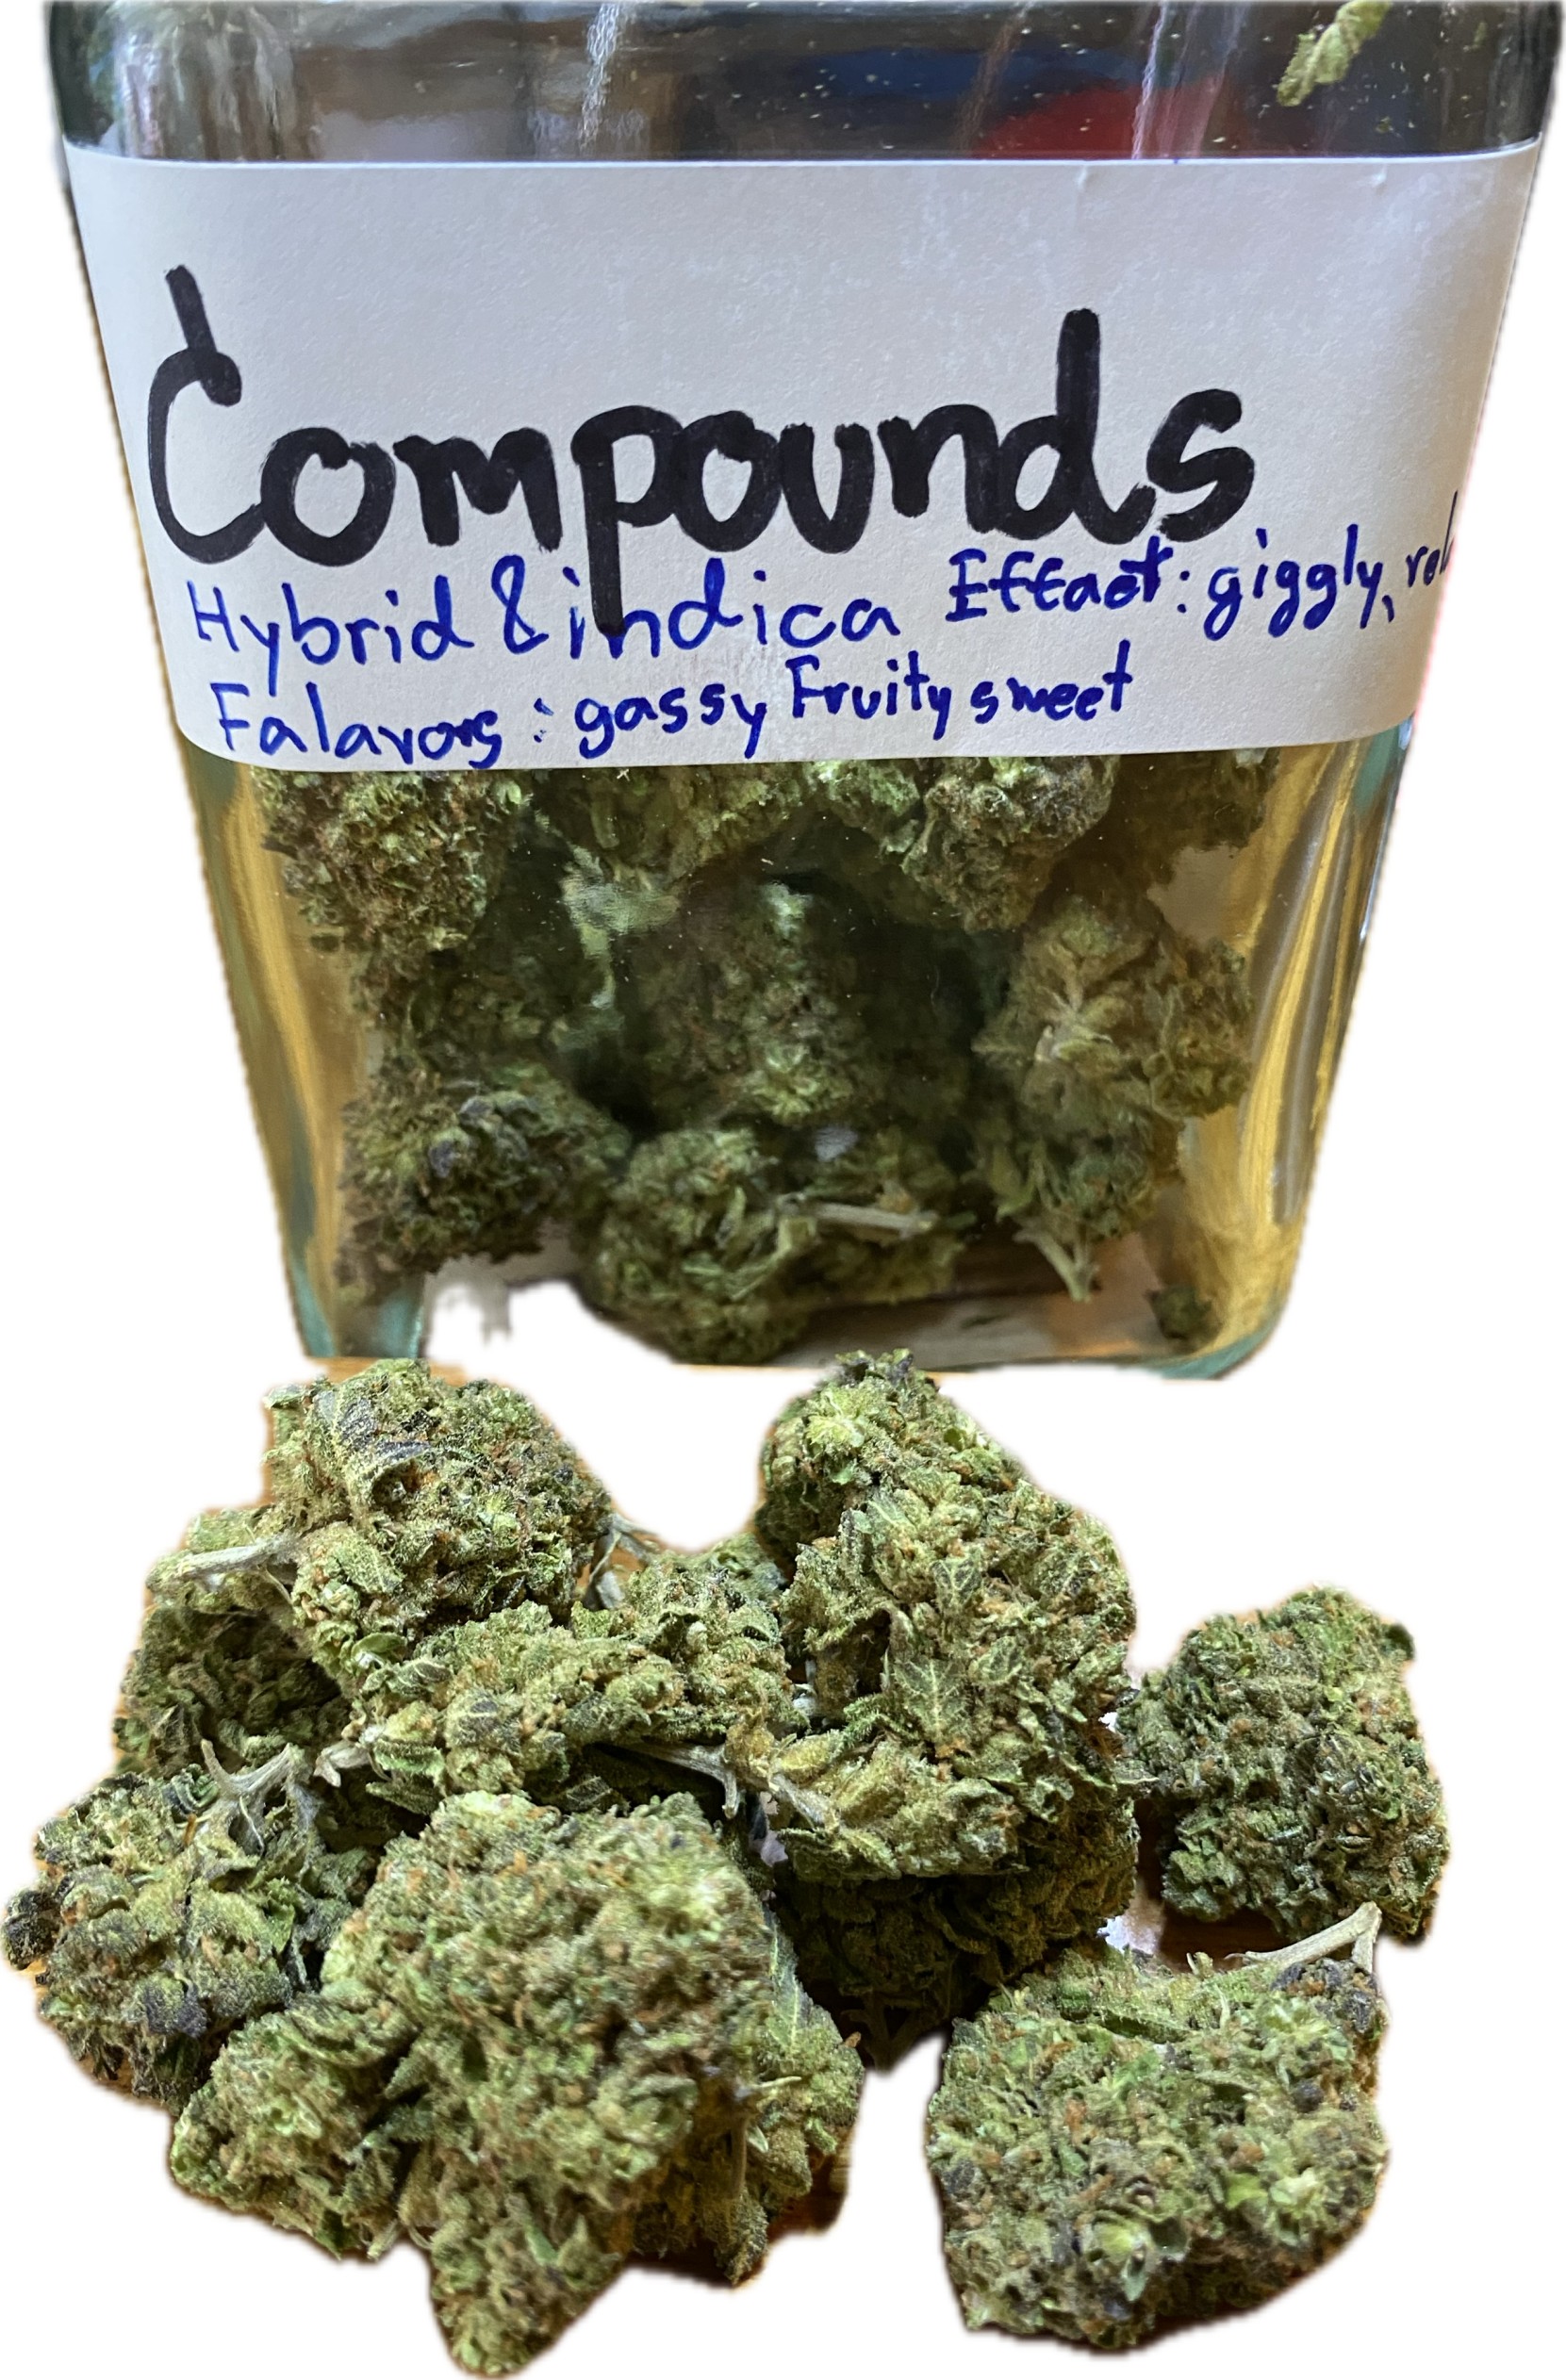 Compounds
Hybrid & indica Effact: giggly,
Falavors: gassy Fruity sweet